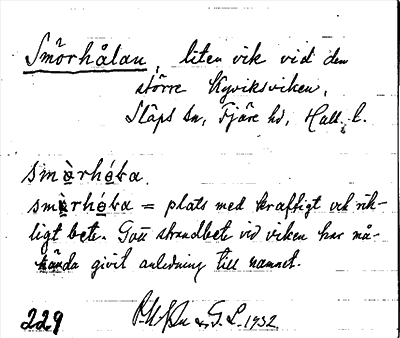 Smörhålan, liten vik vid den
större Kyviksviken,
Släps sn, Fjäre hd, Hall. l.
smòrhóla.
smòrhóla = plats med kraftigt och rik-
ligt bete. Gott strandbete vid viken har må-
hända givit anledning till namnet.
229 G. L. 1932.